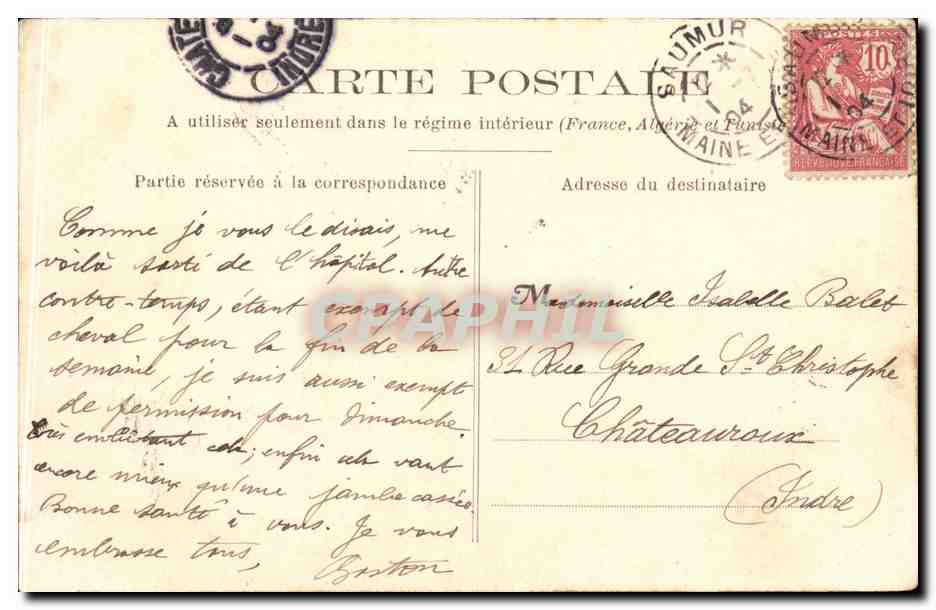 CHATE
INDRE
04
CARTE POSTALE
A utiliser seulement dans le régime intérieur (France, Algérie et Tunisie
SAUMUR
04
MAINE ET
POSTES
10
REPUBLIQUE FRANÇAISE
SAUMUR
04
MAINE ET
Partie réservée à la correspondance
Comme je vous le disais, me
voilà sorti de l'hôpital. Autre
contre-temps, étant exempt de
cheval pour la fin de la
semaine, je suis aussi exempt
de permission pour dimanche.
très embêtant cela; enfin cela vaut
encore mieux qu'une jambe cassée
Bonne santé à vous. Je vous
embrasse tous,
Gaston
Adresse du destinataire
Mademoiselle Isabelle Balet
31 Rue Grande St Christophe
Châteauroux
(Indre)
CPAPHIL